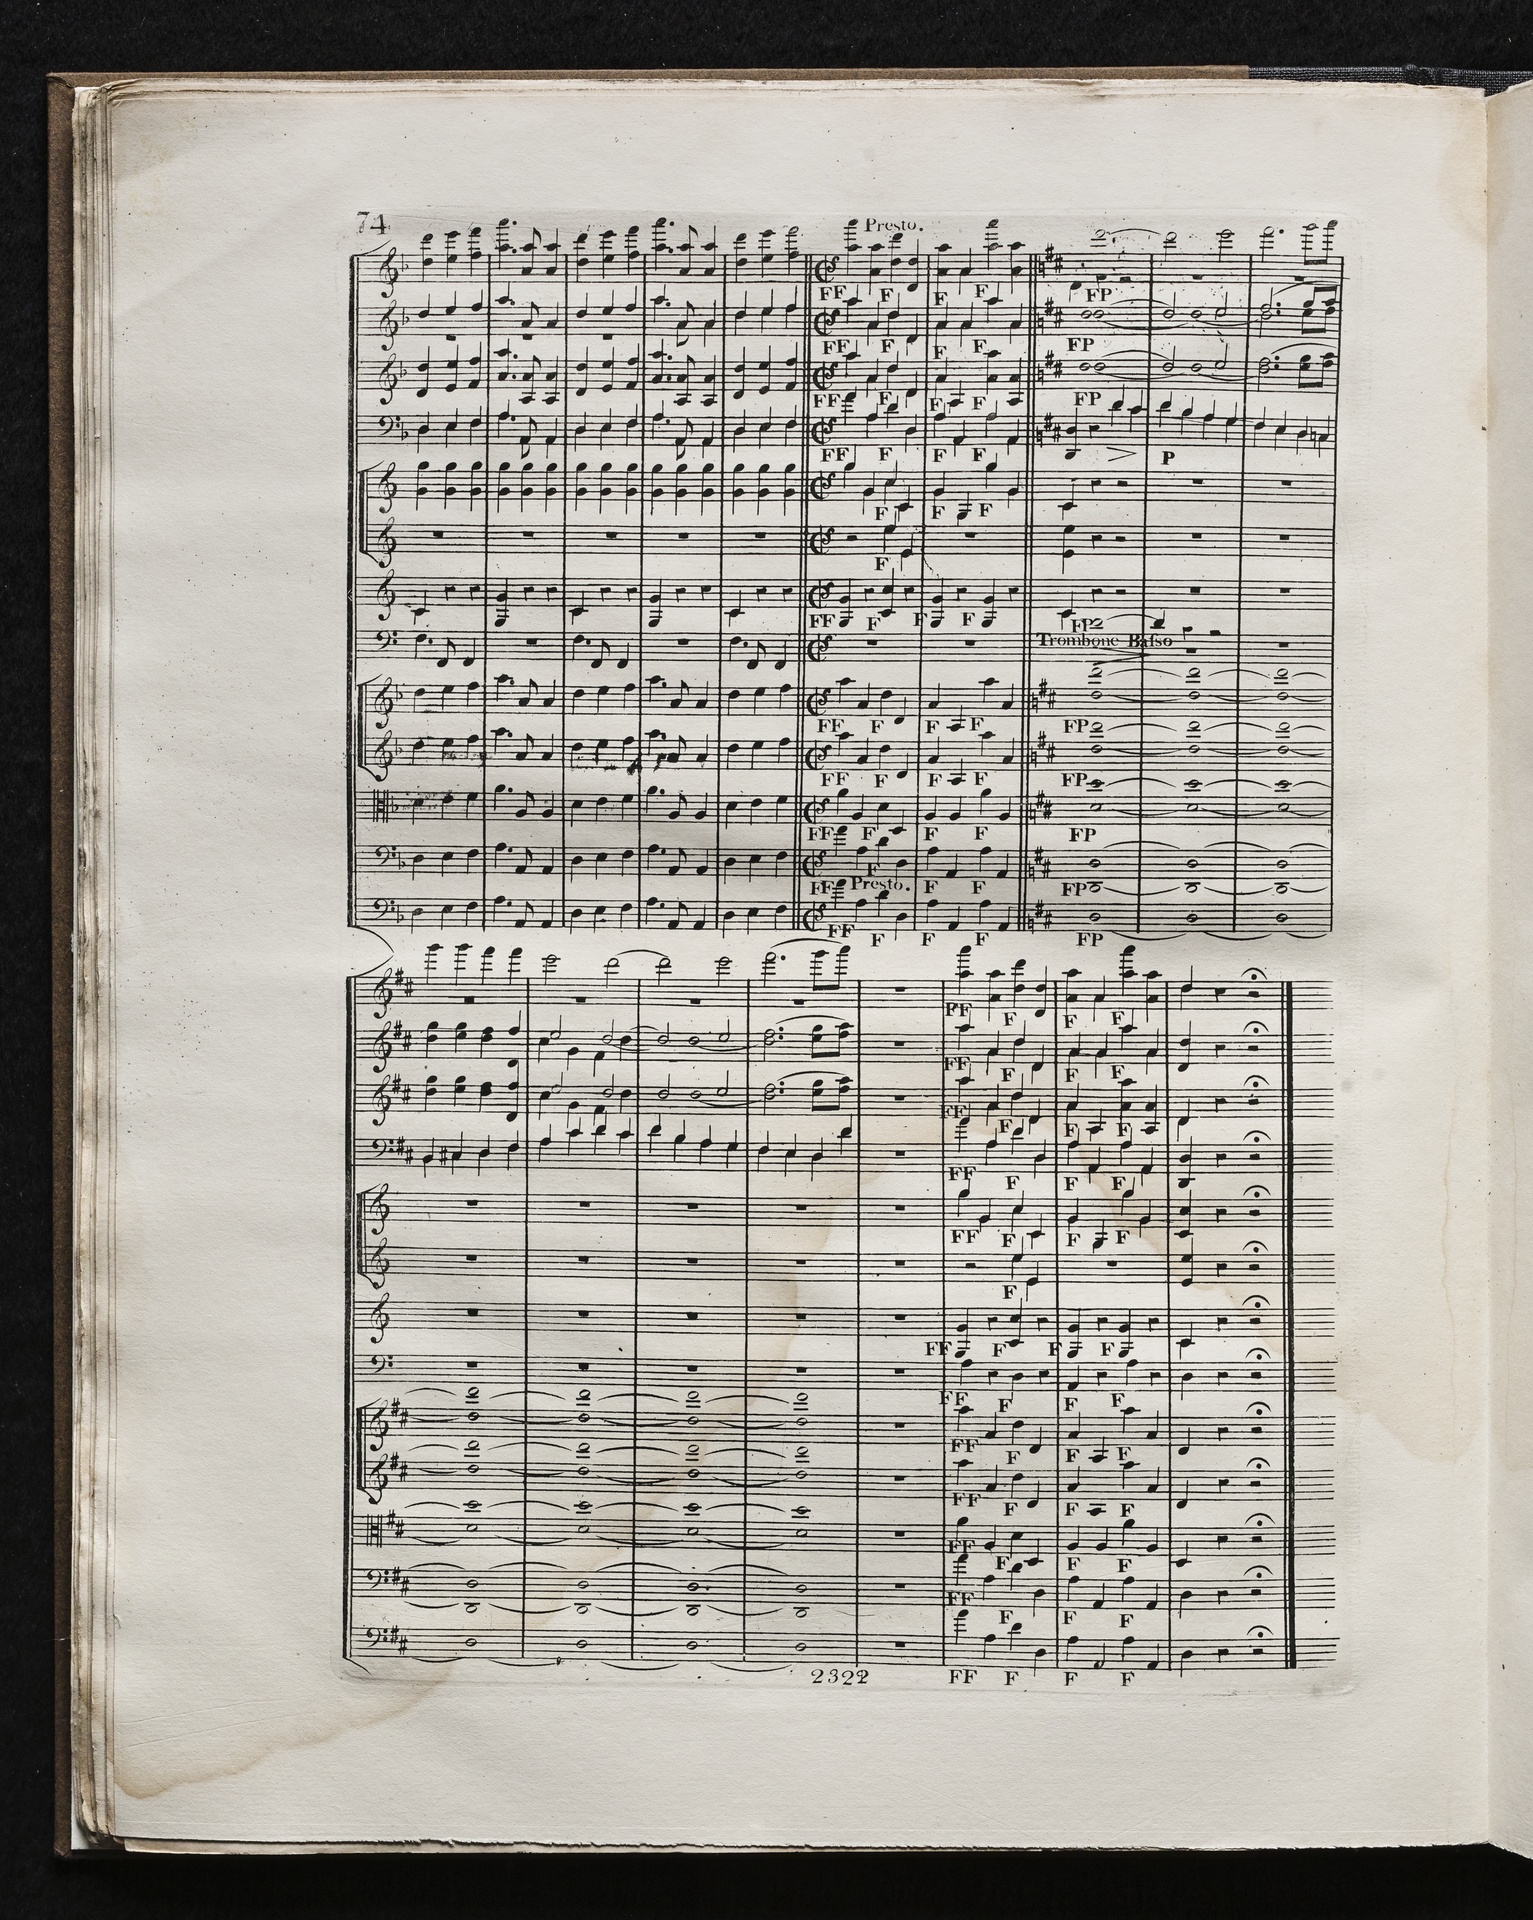 74
Presto.
FF F F F
FP
FF F F F
FP
FF F F F
FP
FF F F F
P
F F F
F
FF F F F
FP
Trombone Baſso
FF F F F
FP
FF F F F
FP
FF F F F
FP
FF F F F
FP
Presto.
FF F F F
FP
FF F F F
FF F F F
FF F F F
FF F F F
FF F F F
F
FF F F F
FF F F F
FF F F F
FF F F F
FF F F F
FF F F F
FF F F F
2322